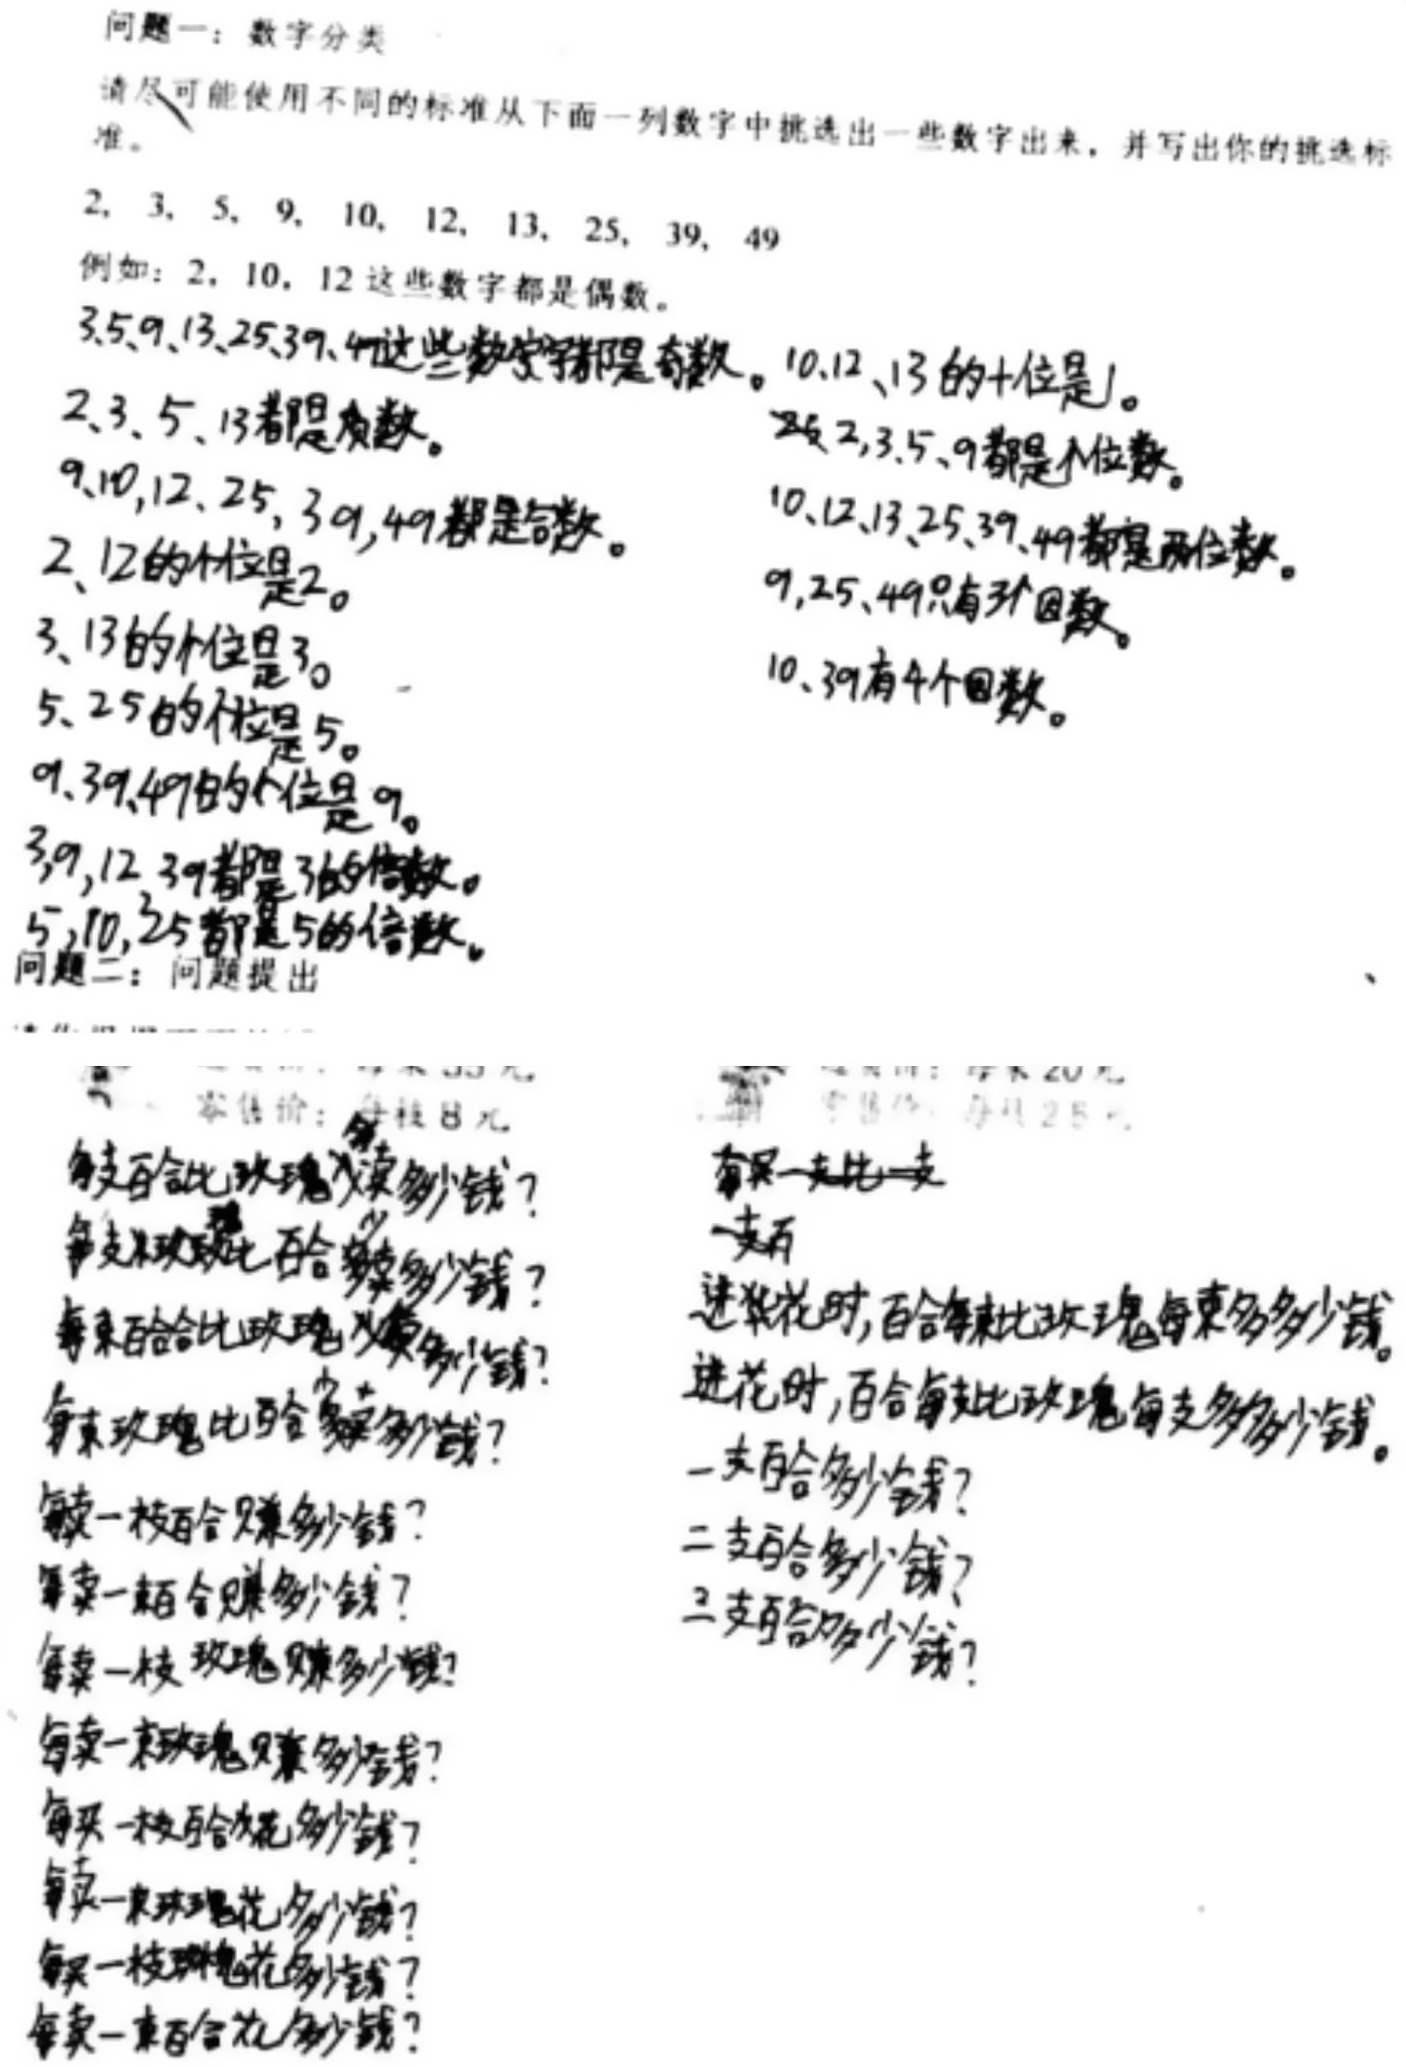 问题一：数字分类
请尽可能使用不同的标准从下面一列数字中挑选出一些数字出来，并写出你的挑选标
准。
2, 3, 5, 9, 10, 12, 13, 25, 39, 49
例如：2, 10, 12 这些数字都是偶数。
3、5、9、13、25、39、49这些数字都是奇数。
2、3、5、13都是质数。
9、10,12、25,39,49都是合数。
2、12的个位是2。
3、13的个位是3。
5、25的个位是5。
9、39、49的个位是9。
3,9,12,39都是3的倍数。
5,10,25都是5的倍数。
10、12、13的十位是1。
2,3、5、9都是个位数。
10、12、13、25、39、49都是两位数。
9,25、49只有3个因数。
10、39有4个因数。
问题二：问题提出
零售价：每枝8元
每支百合比玫瑰多卖多少钱？
每支玫瑰比百合少卖多少钱？
每束百合比玫瑰多卖多少钱？
每束玫瑰比百合少卖多少钱？
每卖一枝百合赚多少钱？
每卖一束百合赚多少钱？
每卖一枝玫瑰赚多少钱？
每卖一束玫瑰赚多少钱？
每买一枝百合花多少钱？
每买一束玫瑰花多少钱？
每买一枝玫瑰花多少钱？
每卖一束百合花多少钱？
一支百
进花时,百合每束比玫瑰每束多多少钱。
进花时,百合每支比玫瑰每支多多少钱。
一支百合多少钱？
二支百合多少钱？
三支百合多少钱？